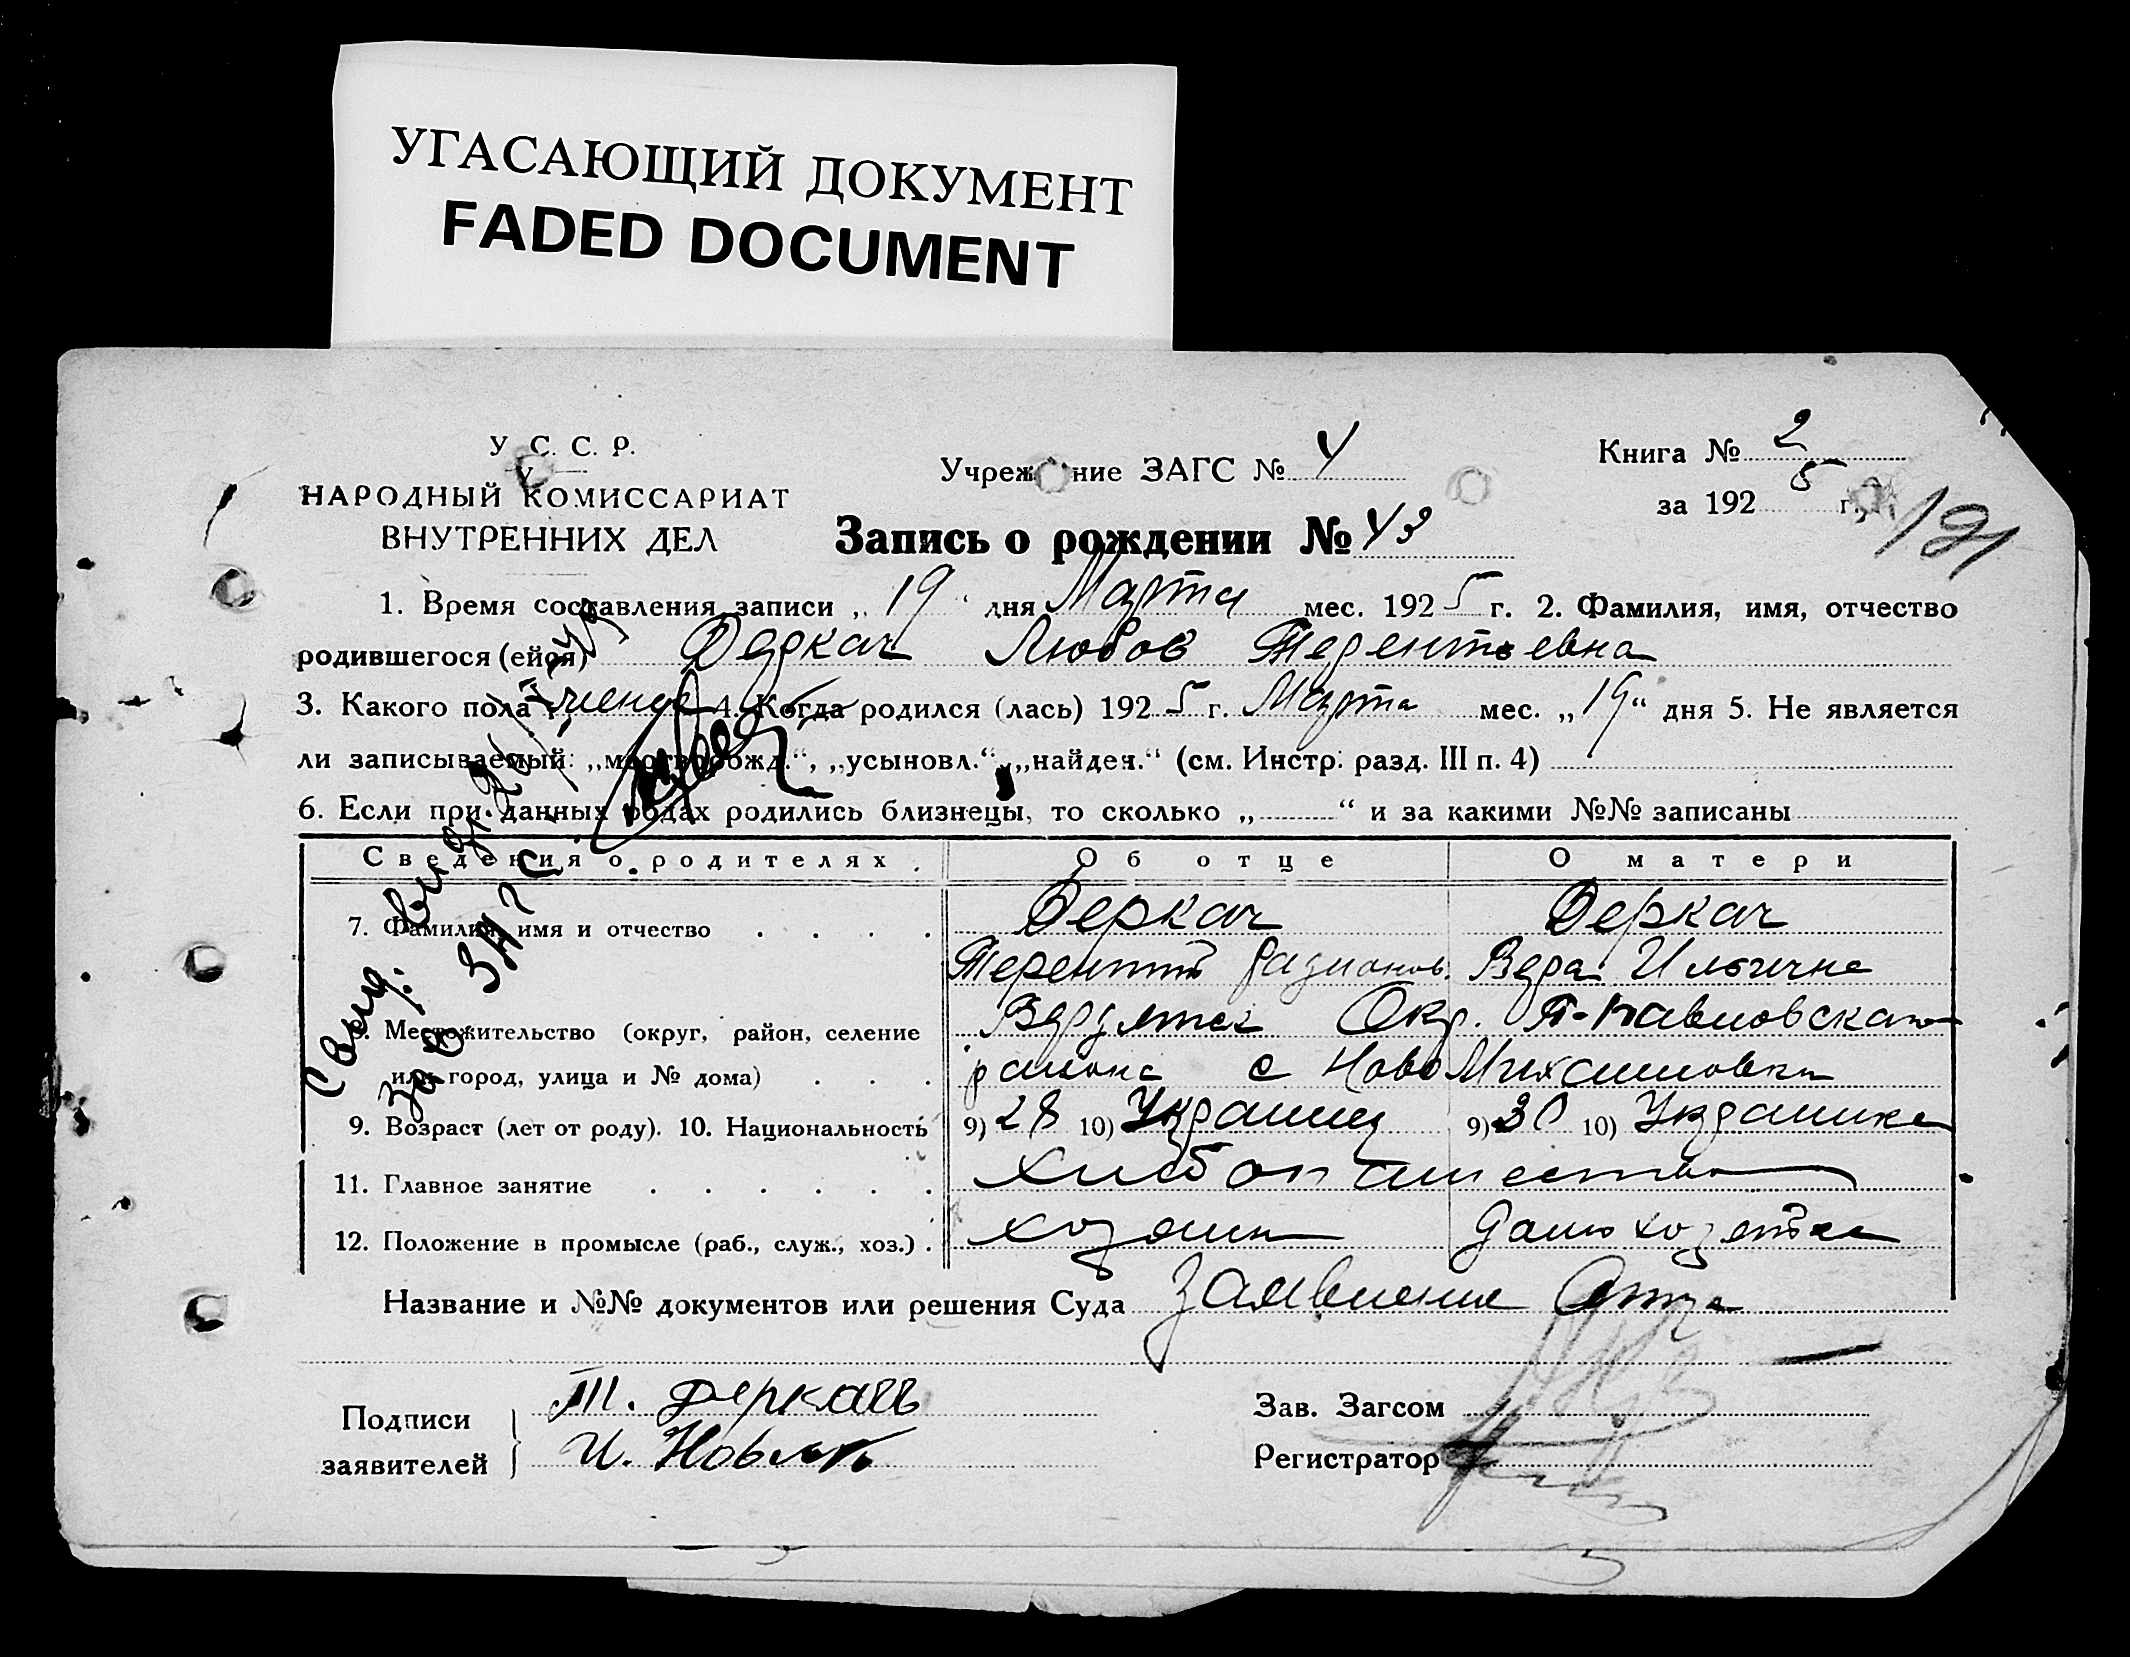 УГАСАЮЩИЙ ДОКУМЕНТ
FADED DOCUMENT
У. С. С. Р.
НАРОДНЫЙ КОМИССАРИАТ
ВНУТРЕННИХ ДЕЛ
Учреж ние ЗАГС № 4
Книга № 2
за 192 5 г.
121
Запись о рождении № 43
1. Время составления записи „ 19 " дня Марта мес. 192 5 г. 2. Фамилия, имя, отчество
родившегося (ейся) Деркач Любов Терентьевна
3. Какого пола женск 4. Когда родился (лась) 192 5 г. Марта мес. „ 19 " дня 5. Не является
ли записываемый: „мертворожд.", „усыновл.", „найден." (см. Инстр. разд. III п. 4)
6. Если при данных родах родились близнецы, то сколько „ " и за какими №№ записаны
Сведения о родителях. Об отце О матери
7. Фамилия, имя и отчество Деркач Деркач
Терентий Радионов. Вера Ильична
8. Местожительство (округ, район, селение Окр. П-Павловскаго
или город, улица и № дома) района с Ново Михайловки
9. Возраст (лет от роду). 10. Национальность 9) 28 10) Украинец 9) 30 10) Украинка
11. Главное занятие хлебопашество
12. Положение в промысле (раб., служ., хоз.) хозяин домохозяйка
Название и №№ документов или решения Суда Заявление Отца
Подписи
заявителей
Т. Деркачь
И.
Зав. Загсом
Регистратор
Свид. выд.
ЗАГС